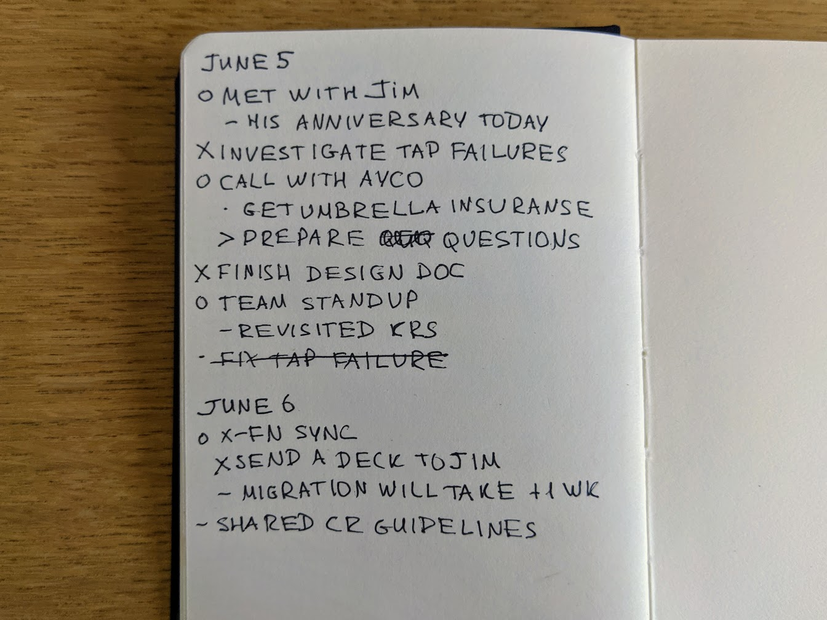 JUNE 5
O MET WITH JIM
- HIS ANNIVERSARY TODAY
X INVESTIGATE TAP FAILURES
O CALL WITH AVCO
· GET UMBRELLA INSURANSE
> PREPARE QUESTIONS
X FINISH DESIGN DOC
O TEAM STANDUP
- REVISITED KRS
· FIX TAP FAILURE
JUNE 6
O X-FN SYNC
X SEND A DECK TO JIM
- MIGRATION WILL TAKE +1 WK
- SHARED CR GUIDELINES